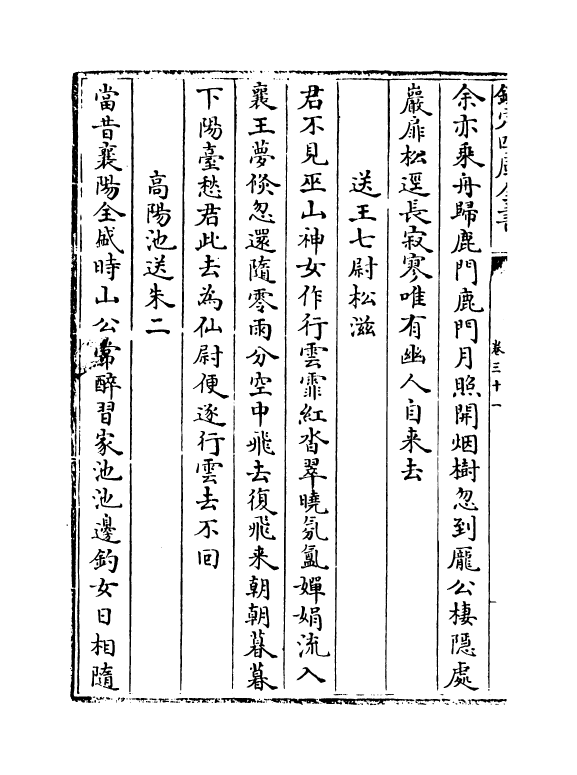 余亦乘舟歸鹿門鹿門月照開烟樹忽到龐公棲隱處
巖扉松逕長寂寥唯有幽人自来去
送王七尉松滋
君不見巫山神女作行雲霏紅沓翠曉氛氳嬋娟流入
襄王夢倐忽還隨零雨分空中飛去復飛来朝朝暮暮
下陽臺愁君此去為仙尉便逐行雲去不回
高陽池送朱二
當昔襄陽全盛時山公常醉習家池池邊釣女日相隨
卷三十一